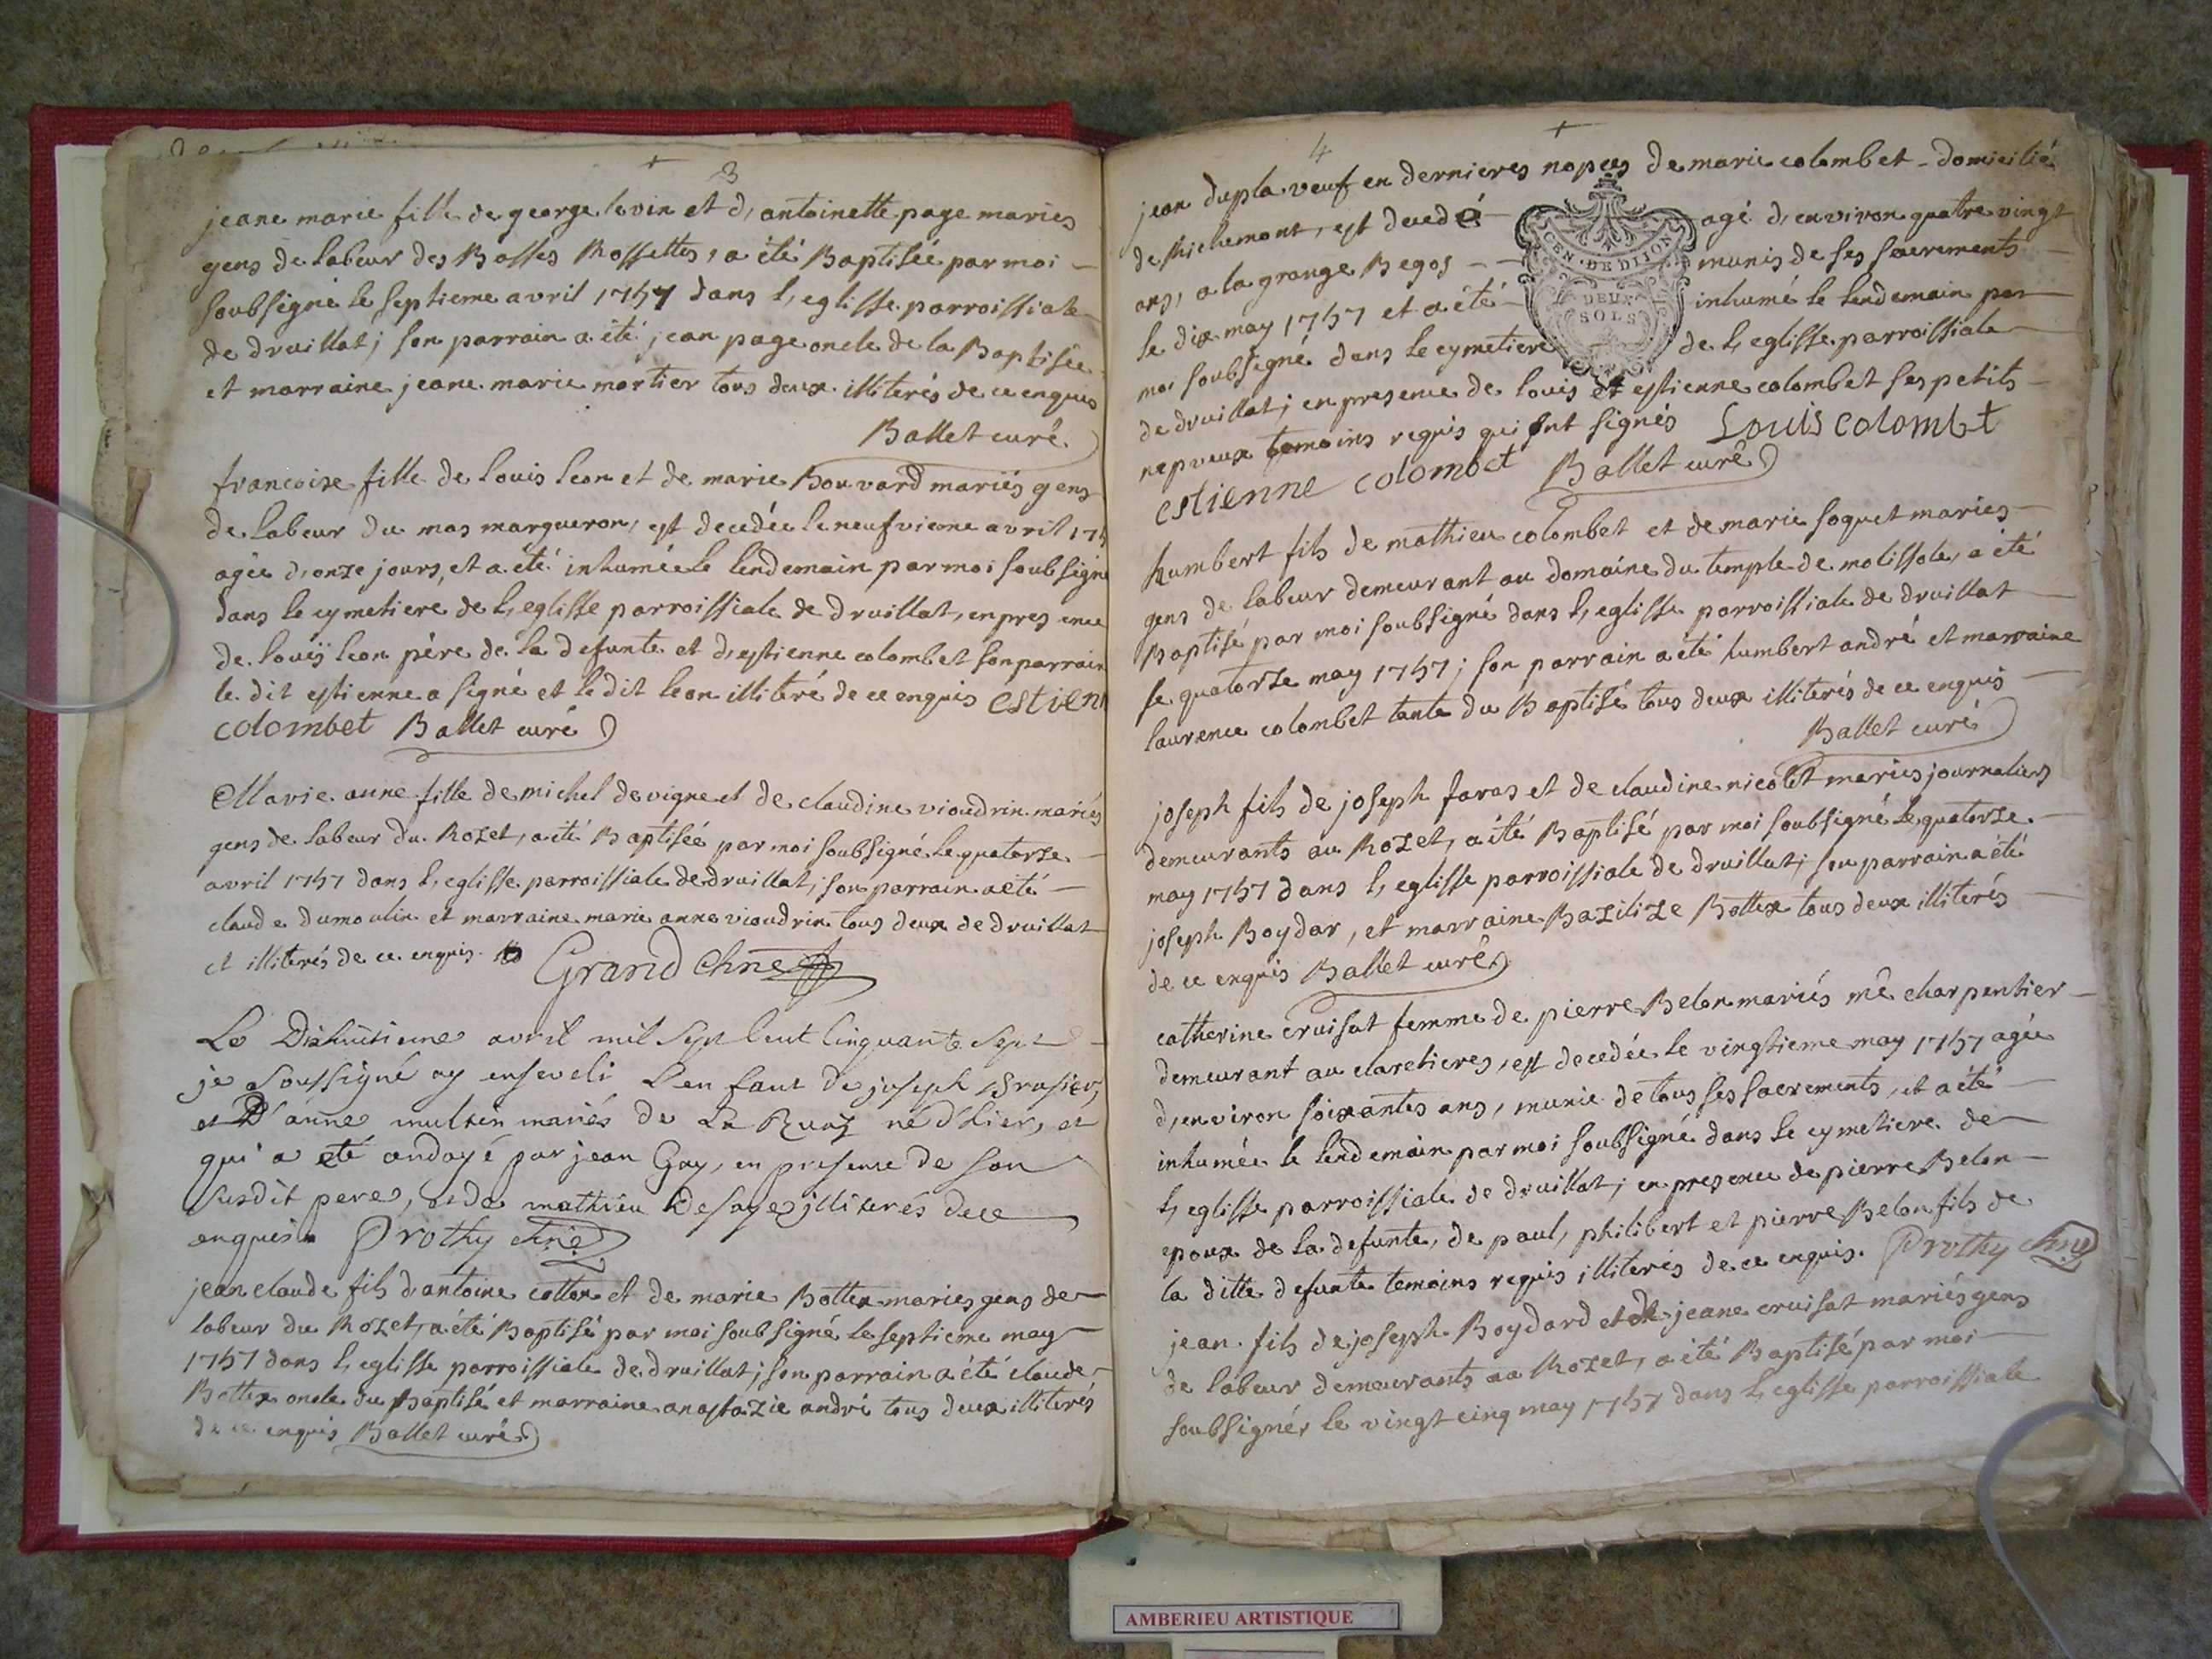 3
jeane marie fille de george levin et d, antoinette page maries
gens de labeur des Basses Rossettes, a été Baptisée par moi
soubsigné le septieme avril 1757 dans l, eglisse parroissiale
de druillat; son parrain a été jean page oncle de la Baptisée
et marraine jeane marie mortier tous deux illiterés de ce enquis
Ballet curé
francoise fille de louis leon et de marie Bouvard mariés gens
de labeur du mas margueron, est decedée le neufvieme avril 175
agée d, onze jours, et a été inhumée le lendemain par moi soubsigné
dans le cymetiere de l, eglisse parroissiale de druillat, en presence
de louis leon père de la defunte et d, estienne colombet son parrain
le dit estienne a signé et le dit leon illiteré de ce enquis Estien
colombet Ballet curé
Marie anne fille de michel devigne et de claudine vioudrin mariés
gens de labeur du Rozet, a été Baptisée par moi soubsigné le quatorze
avril 1757 dans l, eglisse parroissiale de druillat; son parrain a été
claude dumoulin et marraine marie anne vioudrin tous deux de druillat
et illiterés de ce enquis Grand chne
Le Dixhuitieme avril mil sept cent cinquante sept
je soussigné ay enseveli l'enfant de joseph
et D'anne mariés de La Ruaz né d'hier, et
qui a été ondoyé par jean Gay, en presence de son
susdit pere, et de mathieu illiterés de ce
enquis Prothy chne
jean claude fils d'antoine cotton et de marie Bottex maries gens de
labeur du Rozet, a été Baptisé par moi soubsigné le septieme may
1757 dans l, eglisse parroissiale de druillat; son parrain a été claude
Bottex oncle du Baptisé et marraine anastazie andré tous deux illiterés
de ce enquis Ballet curé
4
jean dupla veuf en dernieres nopces de marie colombet domicilié
de Richemont, est decedé agé d, environ quatre vingt
ans, a la grange Begos munis de ses sacrements
le dix may 1757 et a été inhumé le lendemain par
moi soubsigné dans le cymetiere de l, eglisse parroissiale
GEN. DE DIJON
DEUX
SOLS
de druillat; en presence de louis et estienne colombet ses petits
nepveux temoins requis qui ont signés Louis colombt
Estienne colombet Ballet curé
humbert fils de mathieu colombet et de marie soquet maries
gens de labeur demeurant au domaine du temple de molissole, a été
Baptisé par moi soubsigné dans l, eglisse parroissiale de druillat
le quatorze may 1757; son parrain a été humbert andré et marraine
laurence colombet tante du Baptisé tous deux illiterés de ce enquis
Ballet curé
joseph fils de joseph favas et de claudine nicolet maries journaliers
demeurants au Rozet, a été Baptisé par moi soubsigné le quatorze
may 1757 dans l, eglisse parroissiale de druillat; son parrain a été
joseph Boydar, et marraine Bazilize Bottex tous deux illiterés
de ce enquis Ballet curé
catherine cruisat femme de pierre Belon mariés me charpentier
demeurant au claretieres, est decedée le vingtieme may 1757 agée
d, environ soixantes ans, munie de tous ses sacrements, et a été
inhumée le lendemain par moi soubsigné dans le cymetiere de
l, eglisse parroissiale de druillat; en presence de pierre Belon
epoux de la defunte, de paul, philibert et pierre Belon fils de
la ditte defunte temoins requis illiterés de ce enquis. Prothy chne
jean fils de joseph Boydard et de jeane cruisat mariés gens
de labeur demeurants au Rozet, a été Baptisé par moi
soubsignér le vingt cinq may 1757 dans l, eglisse parroissiale
AMBERIEU ARTISTIQUE